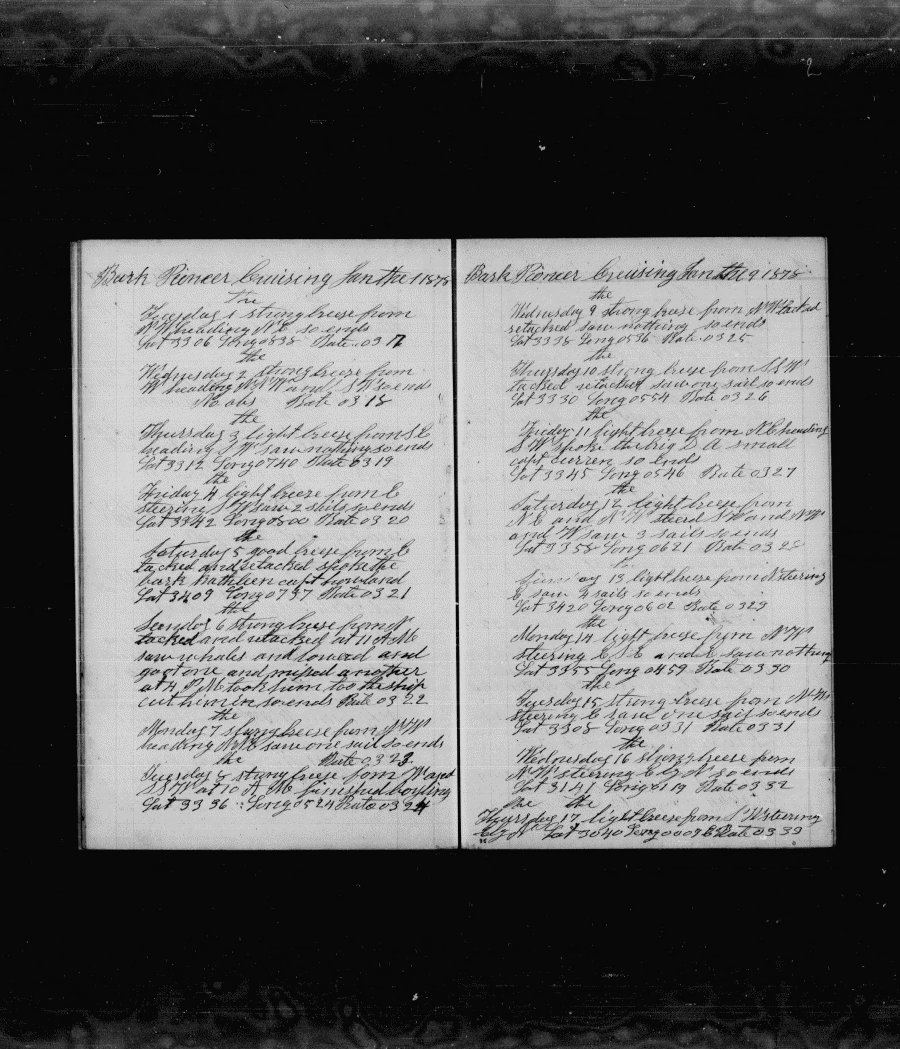 2
Bark Pioneer Cruising Jan the 1 1878
the
Tuesday 1 strong breese from
N W heading N E so ends
Lat 33 06 Long 08 38 Rate 03 17
the
Wednesday 2 strong breese from
W heading N N W and S W so ends
No obs Rate 03 18
the
Thursday 3 light breese from S E
heading S W saw nothing so ends
Lat 33 12 Long 07 40 Rate 03 19
the
Friday 4 light breese from E
steering S W saw 2 sails so ends
Lat 33 42 Long 08 00 Rate 03 20
the
Saturday 5 good breese from E
tacked and retacked spoke the
bark Kathleen capt howland
Lat 34 09 Long 07 37 Rate 03 21
the
Sunday 6 strong breese from N
tacked and retacked at 11 A M
saw whales and lowerd and
got one and missed another
at 4 P M took him too the ship
cut him in so ends Rate 03 22
the
Monday 7 strong breese from N W
heading N N E saw one sail so ends
the Rate 03 23
Tuesday 8 strong breese from W and
S S W at 10 A M finished boyling
Lat 33 36 Long 05 24 Rate 03 24
Bark Pioneer Cruising Jan the 9 1878
the
Wednesday 9 strong breese from N W tacked
retacked saw nothing so ends
Lat 33 38 Long 05 36 Rate 03 25
the
Thursday 10 strong breese from S S W
tacked retacked saw one sail so ends
Lat 33 30 Long 05 54 Rate 03 26
the
Friday 11 light breese from N E heading
S W spoke the brig E A small
capt curren so ends
Lat 33 45 Long 05 46 Rate 03 27
the
Saturday 12 light breese from
N E and N W steerd S W and N W
and W saw 3 sails so ends
Lat 33 58 Long 06 21 Rate 03 28
the
Sunday 13 light breese from N steering
E saw 2 sails so ends
Lat 34 20 Long 06 02 Rate 03 29
the
Monday 14 light breese from N W
steering E S E and E saw nothing
Lat 33 55 Long 04 59 Rate 03 30
the
Tuesday 15 strong breese from N W
steering E saw one sail so ends
Lat 33 08 Long 03 31 Rate 03 31
the
Wednesday 16 strong breese from
N W steering E by N so ends
Lat 31 41 Long 01 19 Rate 03 32
the the
Thursday 17 light breese from S W steering
E by N Lat 30 40 Long 00 09 E Rate 03 33